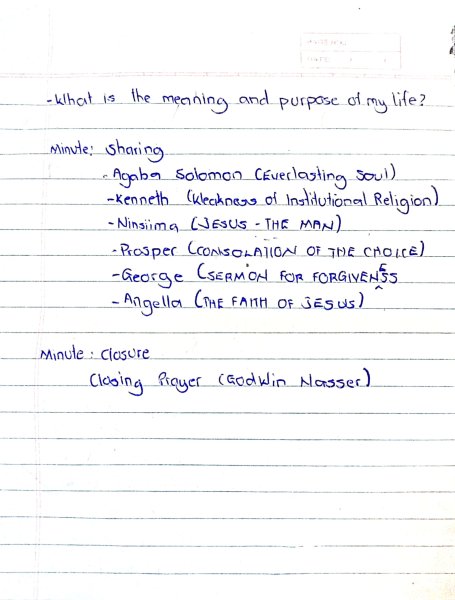 - What is the meaning and purpose of my life?
Minute: Sharing
- Agaba Solomon (Everlasting Soul)
- Kenneth (Weakness of Institutional Religion)
- Ninsiima (JESUS - THE MAN)
- Prosper (CONSOLATION OF THE CHOICE)
- George (SERMON FOR FORGIVENESS
- Angella (THE FAITH OF JESUS)
Minute: Closure
Closing Prayer (Godwin Nasser)